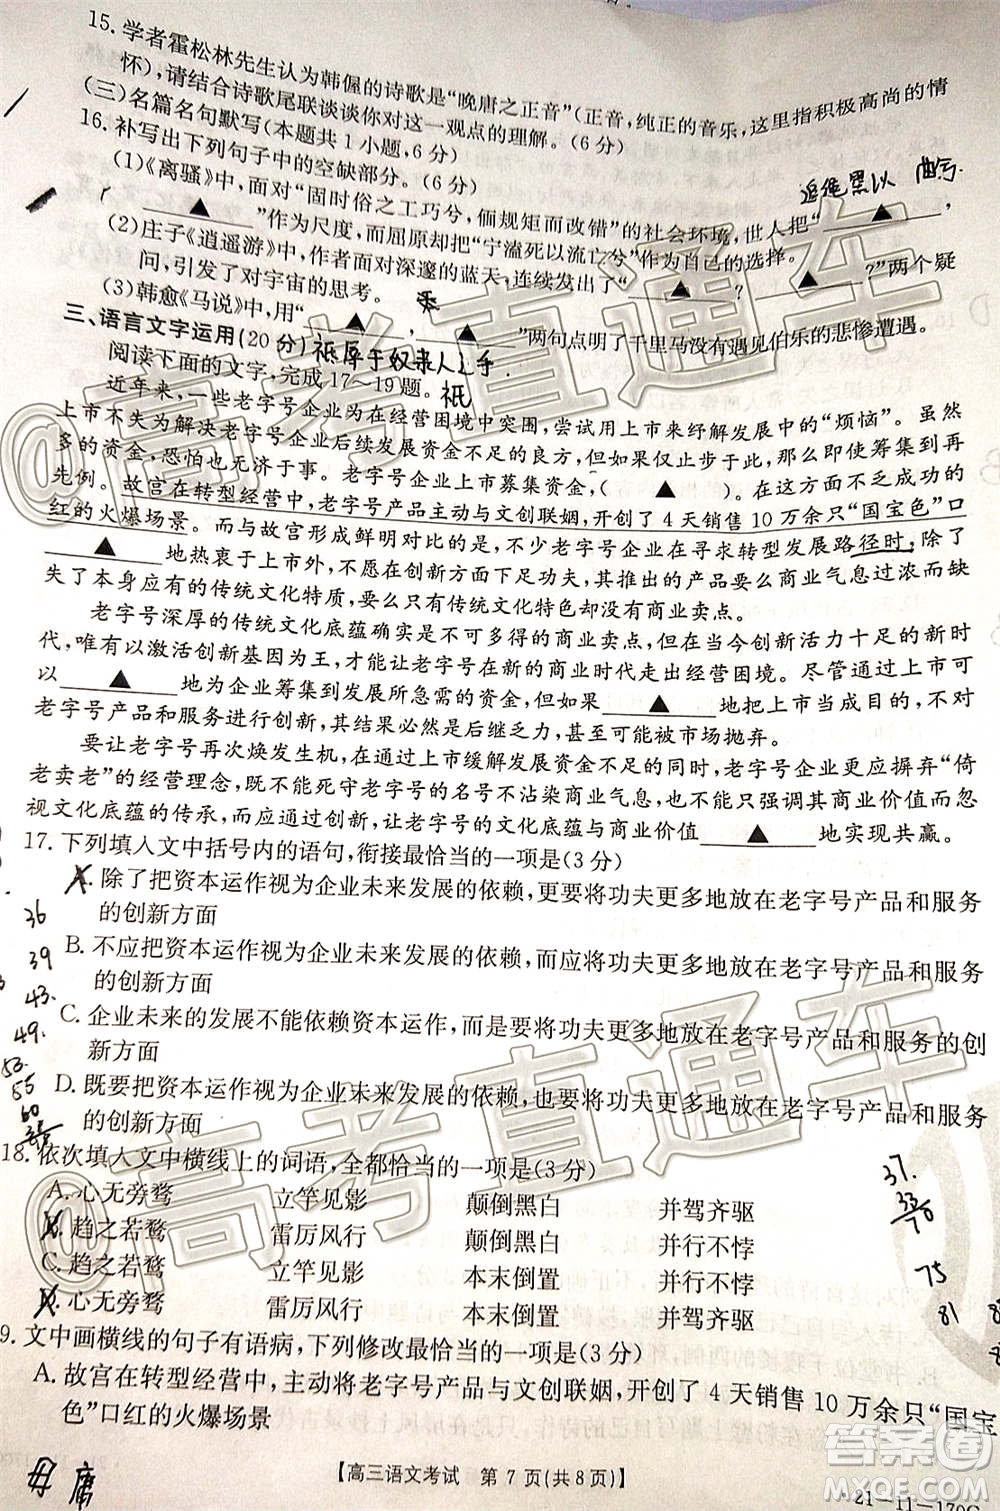 15. 学者霍松林先生认为韩偓的诗歌是“晚唐之正音”(正音,纯正的音乐,这里指积极高尚的情
怀),请结合诗歌尾联谈谈你对这一观点的理解。(6分)
(三)名篇名句默写(本题共1小题,6分)
16. 补写出下列句子中的空缺部分。(6分)
(1)《离骚》中,面对“固时俗之工巧兮,偭规矩而改错”的社会环境,世人把“
▲”作为尺度,屈原却把“宁溘死以流亡兮”作为自己的选择。
(2)庄子《逍遥游》中,作者面对深邃的蓝天,连续发出了“▲?▲?”两个疑
问,引发了对宇宙的思考。
(3)韩愈《马说》中,用“▲,▲”两句点明了千里马没有遇见伯乐的悲惨遭遇。
祗辱于奴隶人之手
祗
三、语言文字运用(20分)
阅读下面的文字,完成17~19题。
近年来,一些老字号企业为在经营困境中突围,尝试用上市来纾解发展中的“烦恼”。虽然
上市不失为解决老字号企业后续发展资金不足的良方,但如果仅止步于此,那么即使筹集了再
多的资金,恐怕也是徒劳。老字号企业上市募集资金,(▲)。在这方面,故宫已开了
先例。故宫在转型经营中,老字号产品主动与文创联姻,开创了4天销售10万余只“国宝色”口
红的火爆场景。而与故宫形成鲜明对比的是,不少老字号企业在寻求转型发展路径时,除了
▲地热衷于融资外,不愿在创新方面下功夫,开发的产品要么商业气息过浓而缺
失了本身应有的传统文化特质,要么只有传统文化特色却没有商业卖点。
老字号深厚的传统文化底蕴确实是不可多得的商业卖点,但在当今创新活力十足的商业时
代,唯有以激活创新基因为王,才能让老字号在新的商业时代走出经营困境。尽管通过上市可
以▲地为企业筹集到发展所急需的资金,但如果▲,把上市当成目的,不对
老字号产品和服务进行创新,其结果必然是后继乏力,甚至可能被市场抛弃。
要让老字号再次焕发生机,在通过上市缓解发展资金不足的同时,老字号企业更应摒弃“倚
老卖老”的经营理念,既不能死守老字号的名号不沾染商业气息,也不能只强调商业价值而忽
视文化底蕴的传承,而应通过创新,让老字号的文化底蕴与商业价值▲地实现共赢。
17. 下列填入文中括号内的语句,衔接最恰当的一项是(3分)
A. 除了把资本运作视为企业未来发展的依赖,更要将功夫更多地放在老字号产品和服务
的创新方面
B. 不应把资本运作视为企业未来发展的依赖,而应将功夫更多地放在老字号产品和服务
的创新方面
C. 企业未来的发展不能依赖资本运作,而要将功夫更多地放在老字号产品和服务的创
新方面
D. 既要把资本运作视为企业未来发展的依赖,也要将功夫更多地放在老字号产品和服务
的创新方面
18. 依次填入文中横线上的词语,全都恰当的一项是(3分)
A. 心无旁骛 立竿见影 颠倒黑白 并驾齐驱
B. 趋之若鹜 雷厉风行 颠倒黑白 并行不悖
C. 趋之若鹜 立竿见影 本末倒置 并行不悖
D. 心无旁骛 雷厉风行 本末倒置 并驾齐驱
9. 文中画横线的句子有语病,下列修改最恰当的一项是(3分)
A. 故宫在转型经营中,主动将老字号产品与文创联姻,开创了4天销售10万余只“国宝
色”口红的火爆场景
【高三语文考试 第7页(共8页)】
·21-11-170C·
36
39
43.
49.
53.
55
60
37.
75
81
@高考直通车
@高考直通车
答案圈
MXQE.COM